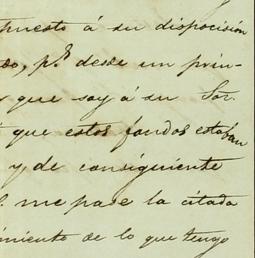 puesto á su disposición
do, p.ª desde un prin-
que soy á su Sor.
que estos fondos estaban
y de consiguiente
me pase la citada
imiento de lo que tengo